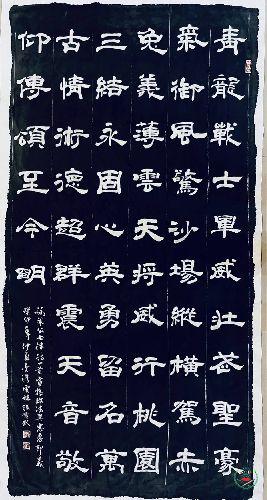 青龍戰士軍威壯蒼聖豪
氣御風驚沙場縱橫駕赤
免義薄雲天将威行桃園
三結永固心英勇留名萬
古情術德超群震天音敬
仰傳頌至今明